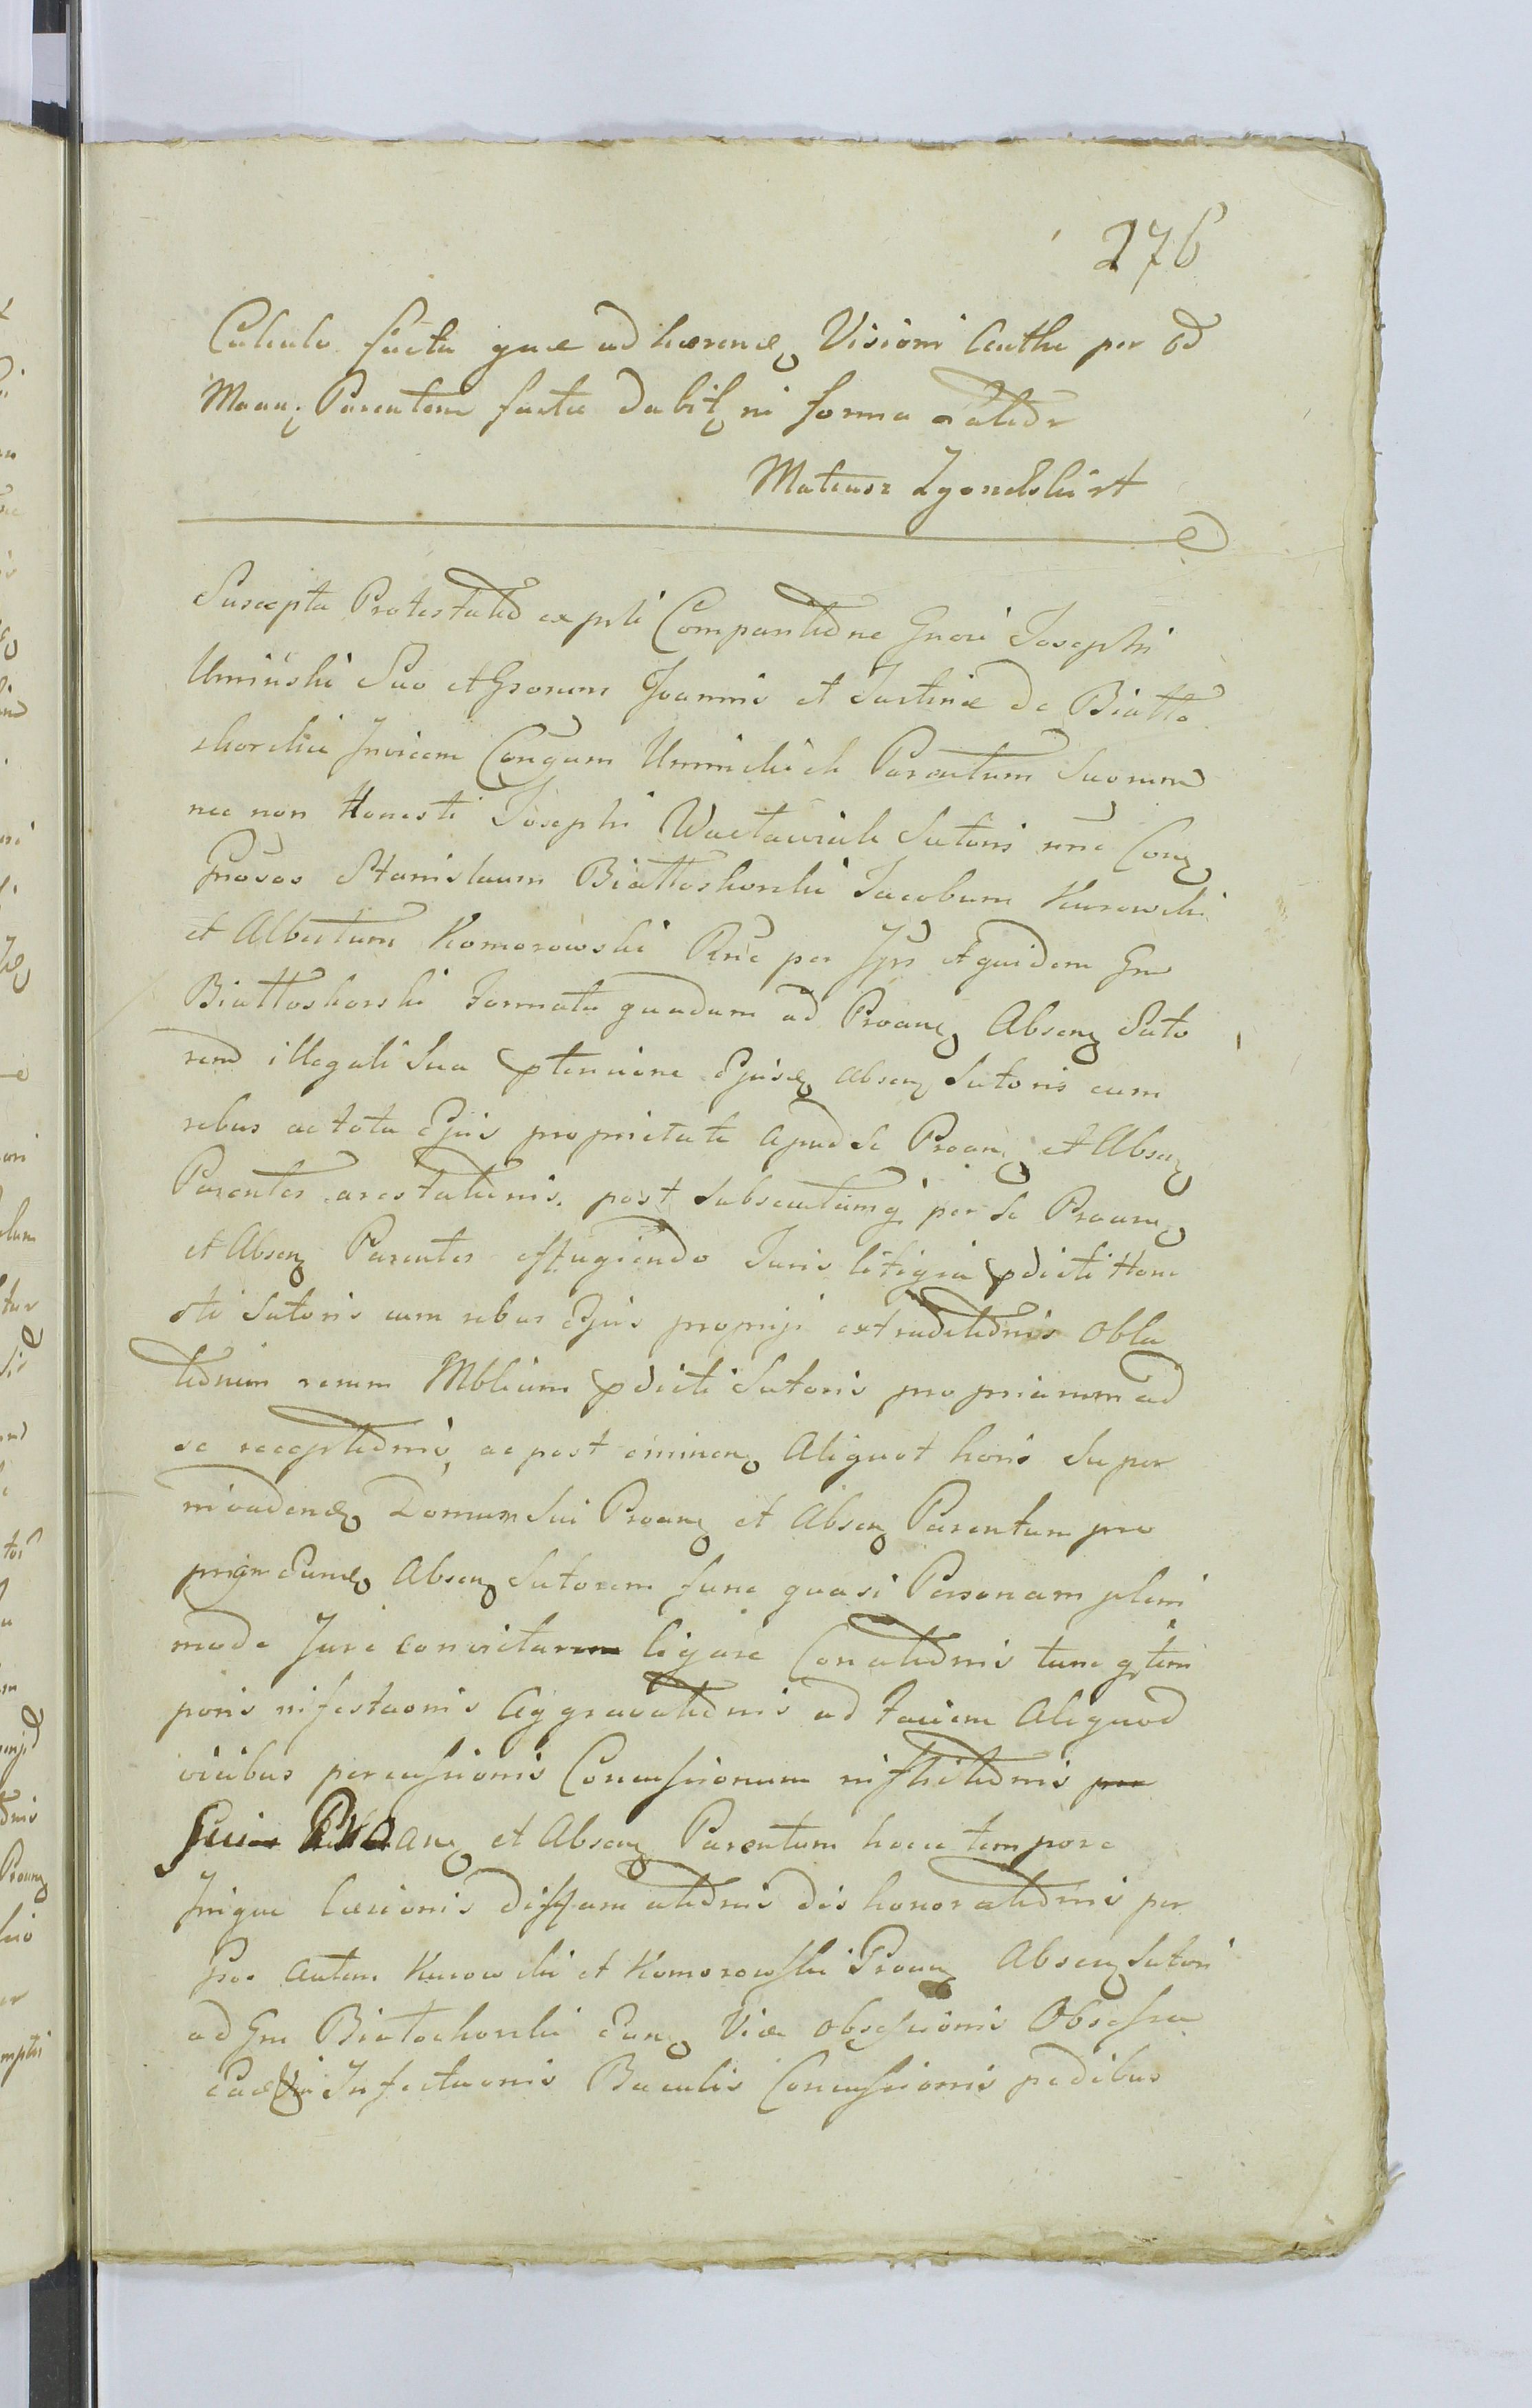 276
Calculo facta quae ad haerend Visioni Cautha per
Manu Parentem facta dabit in forma
Mateusz
Suscepta Protestatio ex psti Comparitione Gnosi Josephi
Uminski Suo et Gnorum Joannis et Justinae de Biatto
skorskie Invicem Congum Uminskich Parentum Suorum
nec non Honesti Josephi Wactawiak Sutoris nne Cong
Gnosos Stanislaum Biattoskorski Jacobum Kurowski
et Albertum Komorowski Rne per Ips et quidem Gm
Biattoskorski formata quadam ad Proang Abseng Suto
rem illegali Sua ptensione Ejusd Abseng Sutoris cum
rebus ac tota Ejus proprietate apud se Proang et Abseng
Parentes arestationis post subsecutumq per se Proang
et Abseng Parentes effugiendo Juris litigia pdicti Hone
sti Sutoris cum rebus Ejus proprijs extraditionis obla
tionum rerum Mblium pdicti Sutoris propriarum ad
se receptionis, ac post eminen Aliquot horis Super
invadend Domum Sui Proang et Abseng Parentum pro
priam Eumd Abseng Sutorem fune quasi Personam pleni
mode Jure convictam ligare Conationis tunc q tem
poris infestaonis Aggravationis ad faciem Aliquod
vicibus percussionis Concussionum inflictionis
Proang et Abseng Parentum hocce tempore
Inique laesionis diffamationis dishonorationis per
Gnos autem Kurowski et Komorowski Proang Abseng Sutori
ad Gm Biatoskorski Eun Viae obsessionis Obsessa
Eaed Via Infestaonis Baculis Concussionis pedibus